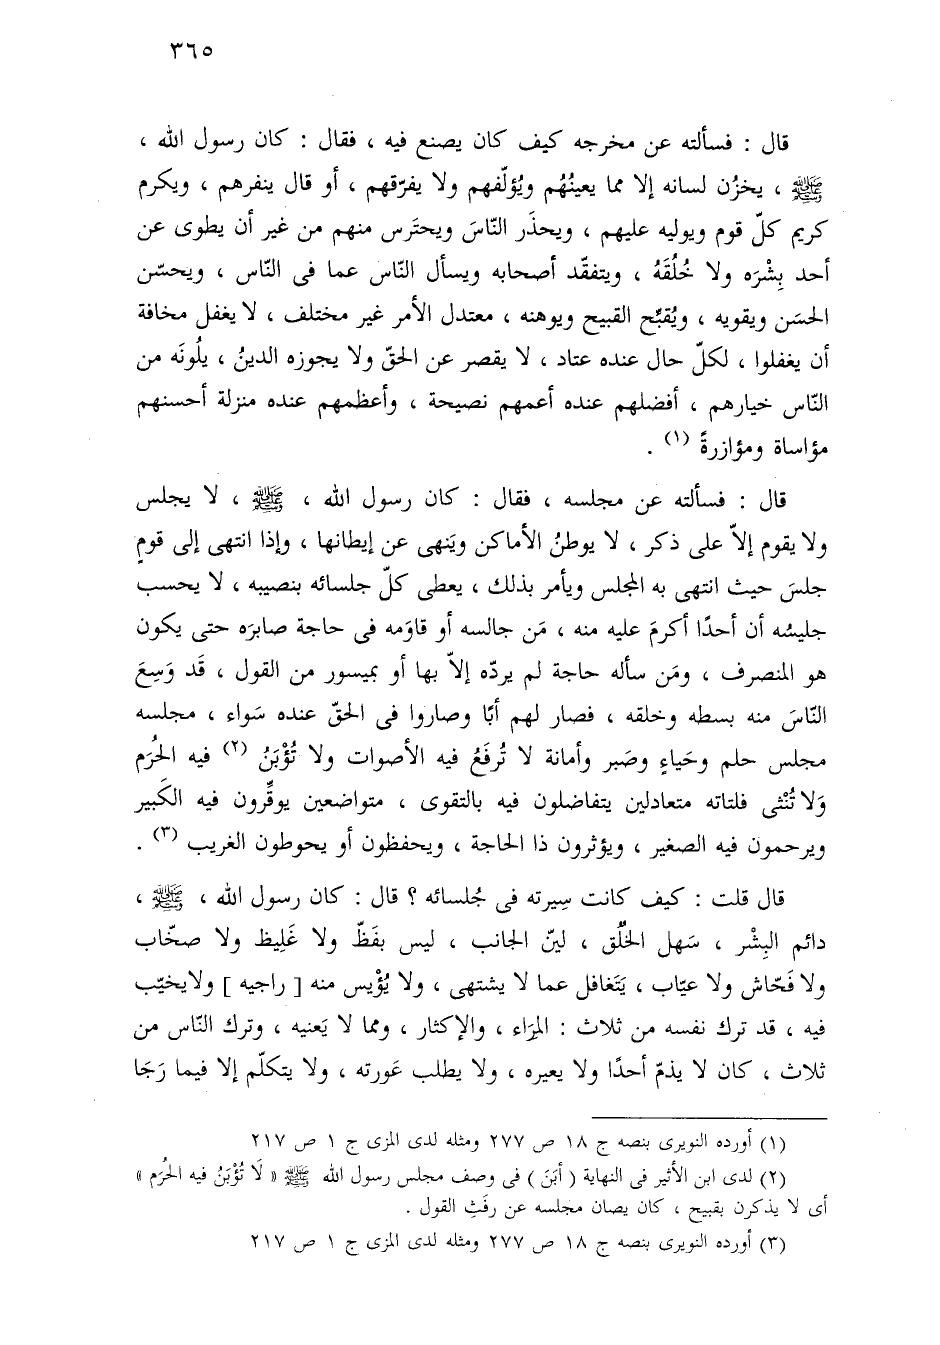 ٣٦٥
قال : فسألته عن مخرجه كيف كان يصنع فيه ، فقال : كان رسول الله ،
ﷺ ، يخزُن لسانه إلا مما يعينُهُم ويُؤلّفهم ولا يفرّقهم ، أو قال ينفرهم ، ويكرم
كريم كلّ قوم ويوليه عليهم ، ويحذَر النّاسَ ويحتَرس منهم من غير أن يطوى عن
أحد بِشْرَه ولا خُلُقَهُ ، ويتفقّد أصحابه ويسأل النّاس عما فى النّاس ، ويحسّن
الحسَن ويقويه ، ويُقبِّح القبيح ويوهنه ، معتدل الأمر غير مختلف ، لا يغفل مخافة
أن يغفلوا ، لكلّ حال عنده عتاد ، لا يقصر عن الحقّ ولا يجوزه الدينُ ، يلُونَه من
النّاس خيارهم ، أفضلهم عنده أعمهم نصيحة ، وأعظمهم عنده منزلة أحسنهم
مؤاساة ومؤازرةً (١) .
قال : فسألته عن مجلسه ، فقال : كان رسول الله ، ﷺ ، لا يجلس
ولا يقوم إلاّ على ذكر ، لا يوطنُ الأماكن ويَنهى عن إيطانها ، وإذا انتهى إلى قومٍ
جلسَ حيث انتهى به المجلس ويأمر بذلك ، يعطى كلّ جلسائه بنصيبه ، لا يحسب
جليسُه أن أحدًا أكرمَ عليه منه ، مَن جالسه أو قاوَمه فى حاجة صابرَه حتى يكون
هو المنصرف ، ومَن سأله حاجة لم يردّه إلاّ بها أو بميسور من القول ، قَد وَسِعَ
النّاسَ منه بسطه وخلقه ، فصار لهم أبًا وصاروا فى الحقّ عنده سَواء ، مجلسه
مجلس حلم وحَياءٍ وصَبر وأمانة لا تُرفَعُ فيه الأصوات ولا تُؤْبَنُ (٢) فيه الحُرَم
وَلا تُنْثى فلتاته متعادلين يتفاضلون فيه بالتقوى ، متواضعين يوقِّرون فيه الكَبير
ويرحمون فيه الصغير ، ويؤثرون ذا الحاجة ، ويحفظون أو يحوطون الغريب (٣) .
قال قلت : كيف كانت سِيرته فى جُلسائه ؟ قال : كان رسول الله ، ﷺ ،
دائم البِشْر ، سَهل الخُلُق ، لينّ الجانب ، ليس بفَظّ ولا غَلِيظ ولا صخّاب
ولا فَحّاش ولا عيّاب ، يَتَغافل عما لا يشتهى ، ولا يُؤْيس منه [ راجيه ] ولايخيّب
فيه ، قد ترك نفسه من ثلاث : المِرَاء ، والإكثار ، ومما لا يَعنيه ، وترك النّاس من
ثلاث ، كان لا يذمّ أحدًا ولا يعيره ، ولا يطلب عَورته ، ولا يتكلّم إلا فيما رَجَا
(١) أورده النويرى بنصه ج ١٨ ص ٢٧٧ ومثله لدى المزى ج ١ ص ٢١٧
(٢) لدى ابن الأثير فى النهاية ( أبَنَ ) فى وصف مجلس رسول الله ﷺ « لَا تُؤْبَنُ فيه الحُرَم »
أى لا يذكرن بقبيح ، كان يصان مجلسه عن رفَثِ القول .
(٣) أورده النويرى بنصه ج ١٨ ص ٢٧٧ ومثله لدى المزى ج ١ ص ٢١٧